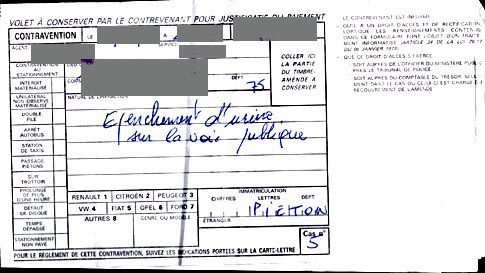 VOLET A CONSERVER PAR LE CONTREVENANT POUR JUSTIFICATIF DU PAIEMENT
CONTRAVENTION LE A
AGENT SERVICE
CONTRAVENTION AU STATIONNEMENT
INTERDIT MATÉRIALISÉ
UNILATÉRAL NON OBSERVÉ MATÉRIALISÉ
DOUBLE FILE
ARRÊT AUTOBUS
STATION DE TAXIS
PASSAGE PIÉTONS
SUR TROTTOIR
PROLONGÉ DE PLUS D'UNE HEURE
DÉFAUT DE DISQUE
TEMPS DÉPASSÉ
STATIONNEMENT NON PAYÉ
DÉPT
75
NATURE DE L'INFRACTION
Epenchement d'urine
sur la voie publique
COLLER ICI
LA PARTIE
DU TIMBRE-
AMENDE A
CONSERVER
RENAULT 1 CITROËN 2 PEUGEOT 3
VW 4 FIAT 5 OPEL 6 FORD 7
AUTRES 8 GENRE OU MODÈLE
IMMATRICULATION
CHIFFRES LETTRES DÉPT
PIETON
ÉTRANGER
Cas n°
5
POUR LE RÈGLEMENT DE CETTE CONTRAVENTION, SUIVEZ LES INDICATIONS PORTÉES SUR LA CARTE-LETTRE
LE CONTREVENANT EST INFORMÉ
QU'IL A UN DROIT D'ACCÈS ET DE RECTIFICATION
LORSQUE LES RENSEIGNEMENTS CONTENUS
DANS CE FORMULAIRE FONT L'OBJET D'UN TRAITE-
MENT INFORMATISÉ (ARTICLE 34 DE LA LOI 78-17
DU 06 JANVIER 1978)
QUE CE DROIT D'ACCÈS S'EXERCE
SOIT AUPRÈS DE L'OFFICIER DU MINISTÈRE PUBLIC
PRÈS LE TRIBUNAL DE POLICE
SOIT AUPRÈS DU COMPTABLE DU TRÉSOR, SEULE-
MENT DANS LE CAS OÙ CELUI-CI EST CHARGÉ DU
RECOUVREMENT DE L'AMENDE